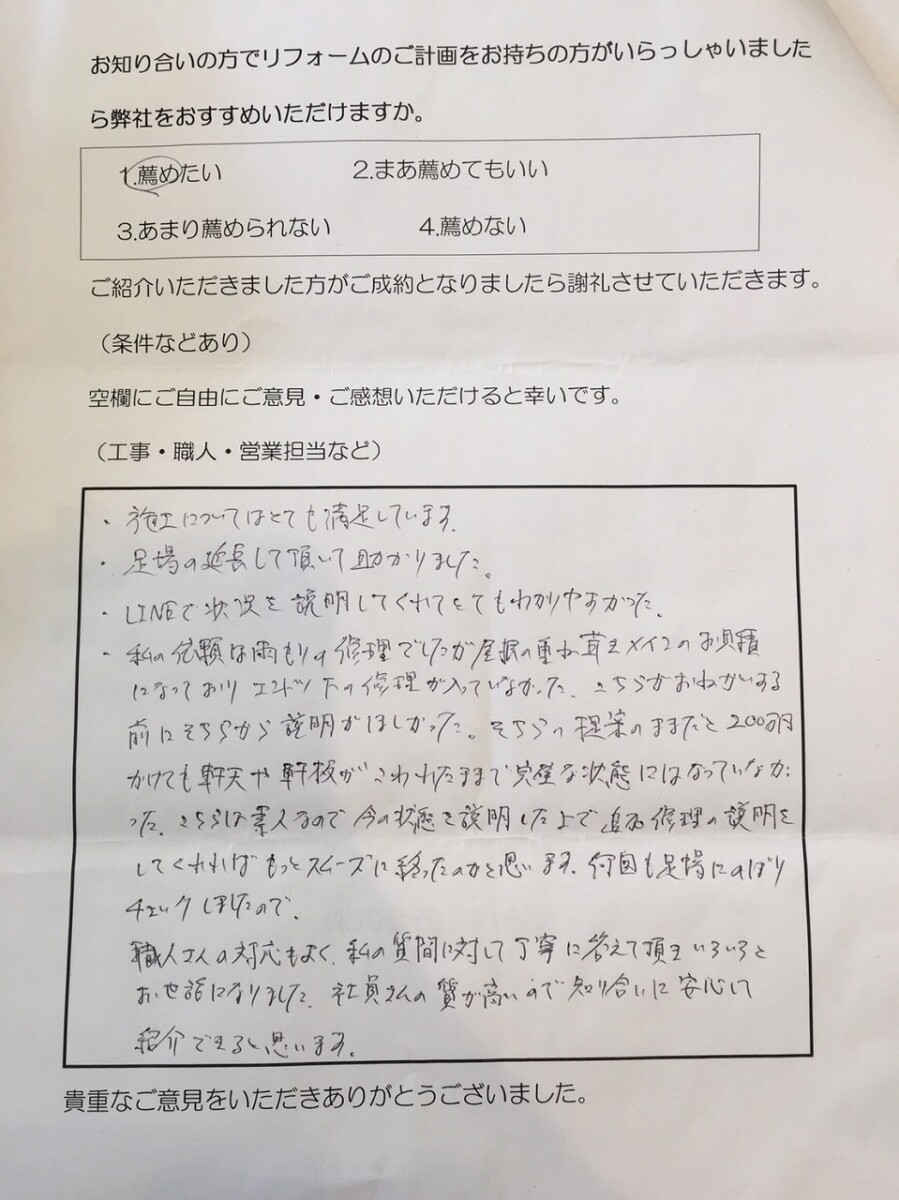 お知り合いの方でリフォームのご計画をお持ちの方がいらっしゃいました
ら弊社をおすすめいただけますか。
1.薦めたい 2.まあ薦めてもいい
3.あまり薦められない 4.薦めない
ご紹介いただきました方がご成約となりましたら謝礼させていただきます。
（条件などあり）
空欄にご自由にご意見・ご感想いただけると幸いです。
（工事・職人・営業担当など）
・施工についてはとても満足しています。
・足場の延長して頂いて助かりました。
・LINEで状況を説明してくれてとてもわかりやすかった。
・私の依頼は雨もりの修理でしたが屋根の重ね葺きメインのお見積
になっており の修理が入っていなかった。こちらがおねがいする
前にそちらから説明がほしかった。そちらの提案のままだと200万円
かけても軒天や軒板がこわれたままで完璧な状態にはなっていなか
った。こちらは素人なので今の状態を説明した上で追加修理の説明を
してくれればもっとスムーズに終ったのかと思います。何回も足場にのぼり
チェックしましたので。
職人さんの対応もよく、私の質問に対して丁寧に答えて頂きいろいろと
お世話になりました。社員さんの質が高いので知り合いに安心して
紹介できると思います。
貴重なご意見をいただきありがとうございました。